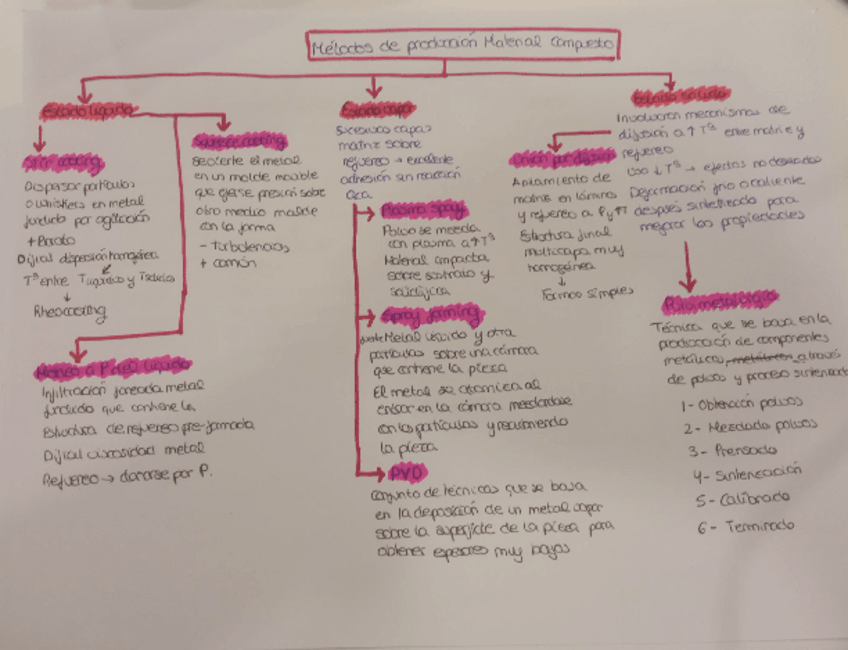 Métodos de producción Material compuesto
Estado líquido
Stir casting
Dispersar partículas
o whiskers en metal
fundido por agitación
+ Barato
Difícil dispersión homogénea
Tª entre Tliquidus y Tsolidus
Rheocasting
Squeeze casting
Se vierte el metal
en un molde movible
que ejerce presión sobre
otro medio molde
con la forma
- Turbolencias
+ común
Moldeo a P del líquido
Infiltración forzada metal
fundido que contiene la
estructura de refuerzo pre-formada
Difícil viscosidad metal
Refuerzo → dañarse por P.
Estado vapor
Sucesivas capas
matriz sobre
refuerzo → excelente
adhesión sin reacción
Plasma spray
Polvo se mezcla
con plasma a ↑Tª
Material impacta
sobre sustrato y
solidifica
Spray forming
Metal líquido y otra
partículas sobre una cámara
que contiene la pieza
El metal se atomiza al
entrar en la cámara mezclandose
con las partículas y recubriendo
la pieza
PVD
Conjunto de técnicas que se basa
en la deposición de un metal vapor
sobre la superficie de la pieza para
obtener espesores muy bajos
Estado sólido
Involucran mecanismos de
difusión a ↑Tª entre matriz y
refuerzo
Uso ↓Tª → efectos no deseados
Deformación frío o caliente
después sinterizado para
mejorar las propiedades
Unión por difusión
Apilamiento de
matriz en láminas
y refuerzo a P y ↑T
Estructura final
multicapa muy
homogénea
Formas simples
Pulvimetalurgia
Técnica que se basa en la
producción de componentes
metálicos a través
de polvos y proceso sinterizado
1- Obtención polvos
2- Mezclado polvos
3- Prensado
4- Sinterización
5- Calibrado
6- Terminado